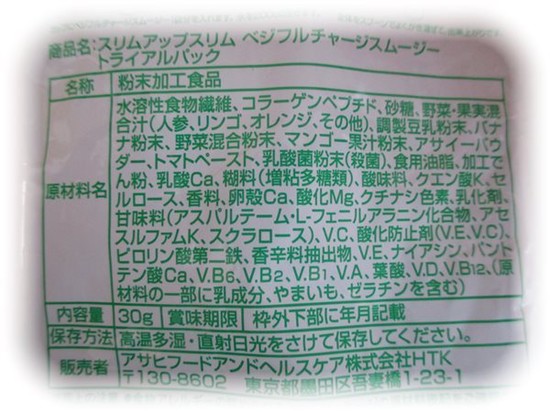 商品名:スリムアップスリム ベジフルチャージスムージー
トライアルパック
名称 粉末加工食品
原材料名
水溶性食物繊維、コラーゲンペプチド、砂糖、野菜・果実混
合汁(人参、リンゴ、オレンジ、その他)、調製豆乳粉末、バナ
ナ粉末、野菜混合粉末、マンゴー果汁粉末、アサイーパウ
ダー、トマトペースト、乳酸菌粉末(殺菌)、食用油脂、加工で
ん粉、乳酸Ca、糊料(増粘多糖類)、酸味料、クエン酸K、セ
ルロース、香料、卵殻Ca、酸化Mg、クチナシ色素、乳化剤、
甘味料(アスパルテーム・L-フェニルアラニン化合物、アセ
スルファムK、スクラロース)、V.C、酸化防止剤(V.E、V.C)、
ピロリン酸第二鉄、香辛料抽出物、V.E、ナイアシン、パント
テン酸Ca、V.B6、V.B2、V.B1、V.A、葉酸、V.D、V.B12、(原
材料の一部に乳成分、やまいも、ゼラチンを含む)
内容量 30g 賞味期限 枠外下部に年月記載
保存方法 高温多湿・直射日光をさけて保存してください。
販売者 アサヒフードアンドヘルスケア株式会社HTK
〒130-8602 東京都墨田区吾妻橋1-23-1